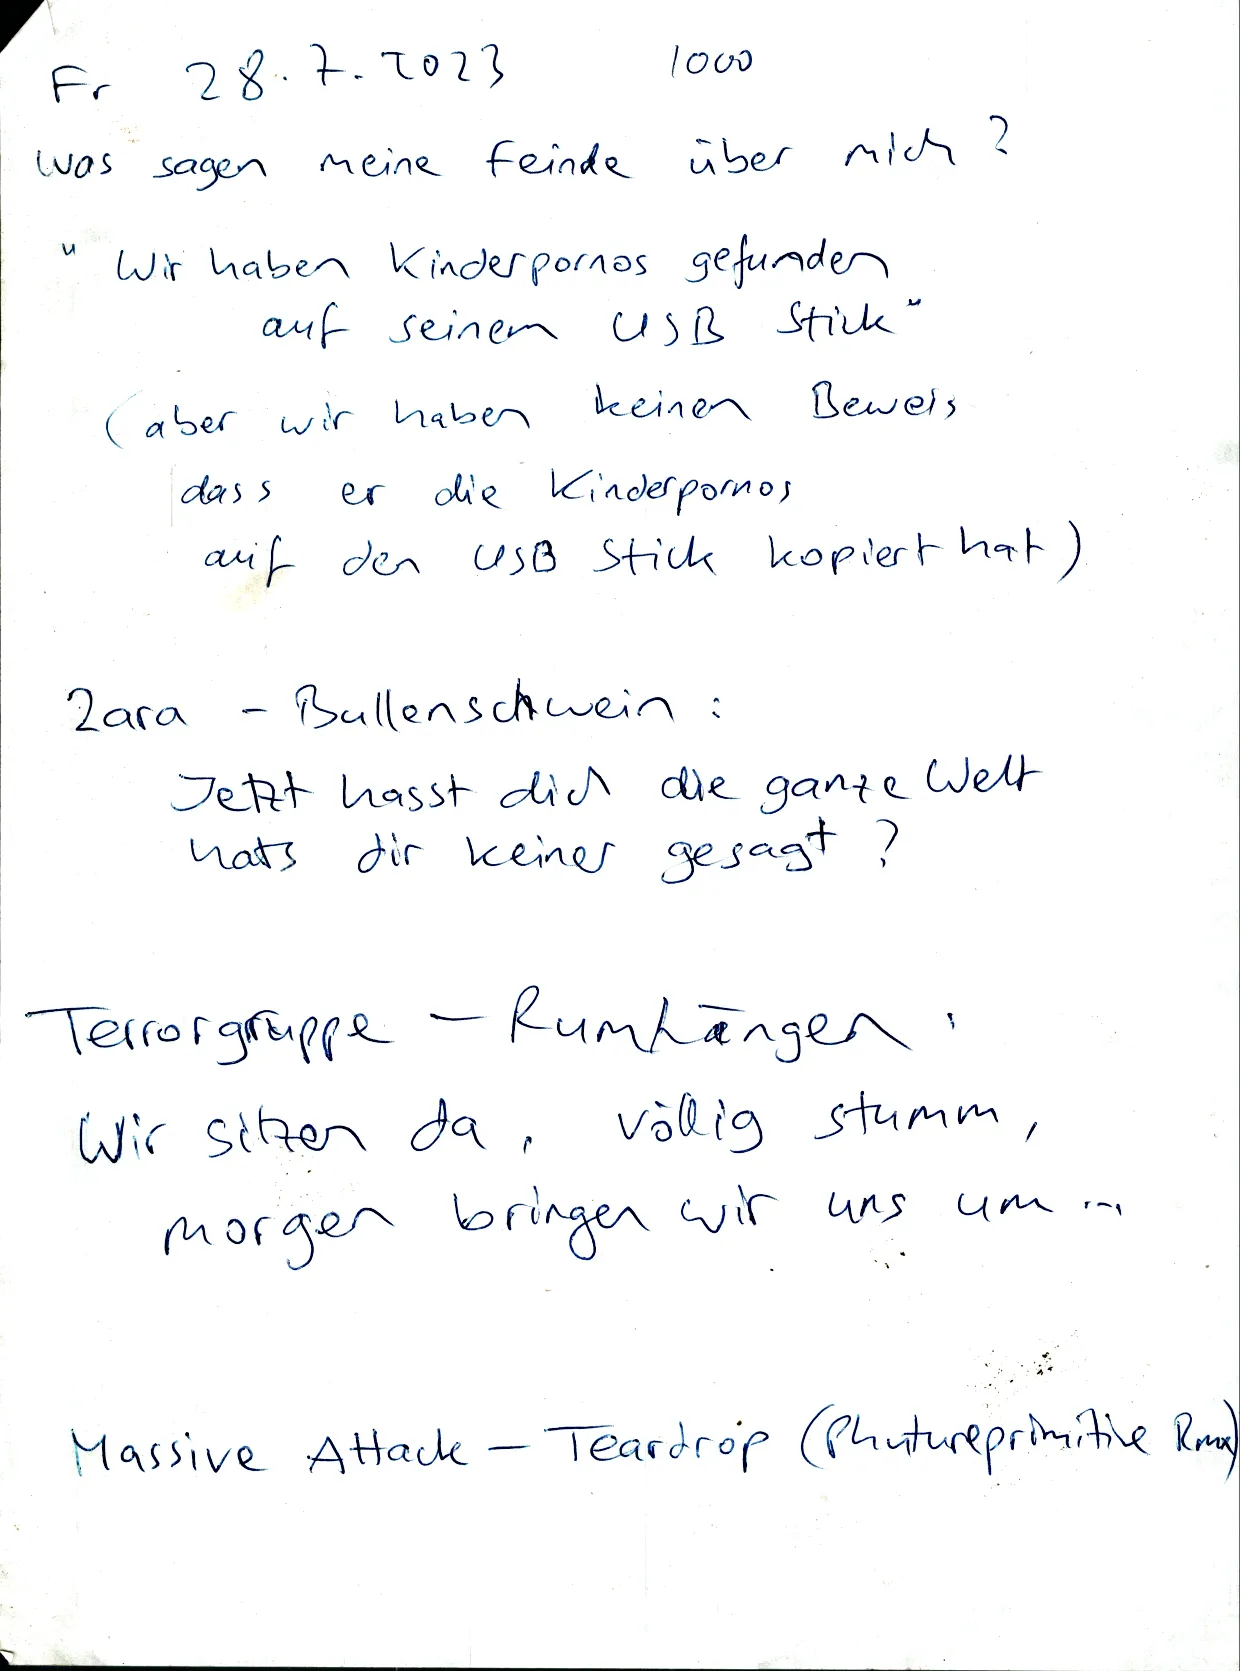 Fr 28.7.2023 1000
Was sagen meine Feinde über mich?
"Wir haben Kinderpornos gefunden
auf seinem USB Stick"
(aber wir haben keinen Beweis
dass er die Kinderpornos
auf den USB Stick kopiert hat)
Zara - Bullenschwein:
Jetzt hasst dich die ganze Welt
hats dir keiner gesagt?
Terrorgruppe - Rumhängen:
Wir sitzen da, völlig stumm,
morgen bringen wir uns um...
Massive Attack - Teardrop (Phutureprimitive Rmx)